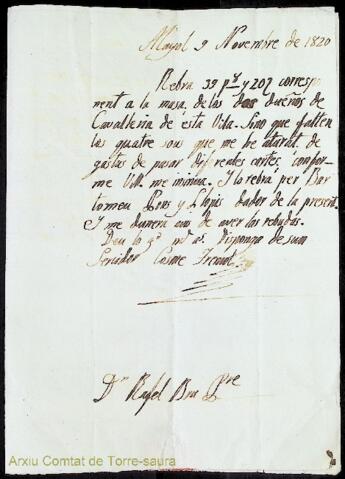 Mayol 9 Novembre de 1820
Rebra 39 p.s y 207 correspo
nent a la masa, de las dos dueños de
Cavalleria de esta Vila. Sino que falten
las quatre sous que me be
gastos de pasar diferentes cartes, confor-
me Vm. me insinua. Y lo rebrá per Bar
tomeu Pons y Llopis dador de la present.
Y me donera avis de aver los rebudas.
Deu lo g.e m.s a.s Disponga de sum
Servidor Cosme
D.n Rafel Bru Pre
Arxiu Comtat de Torre-saura